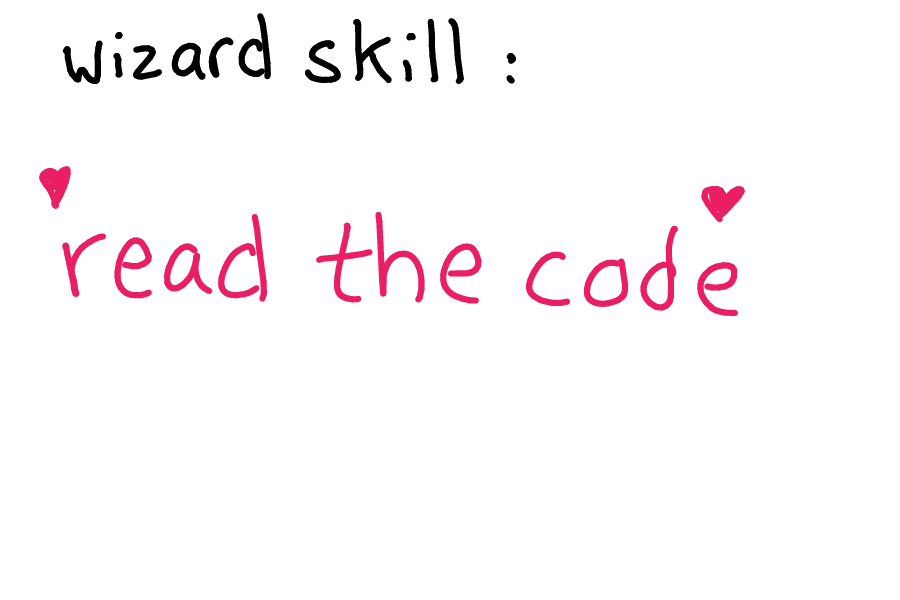 wizard skill:
read the code